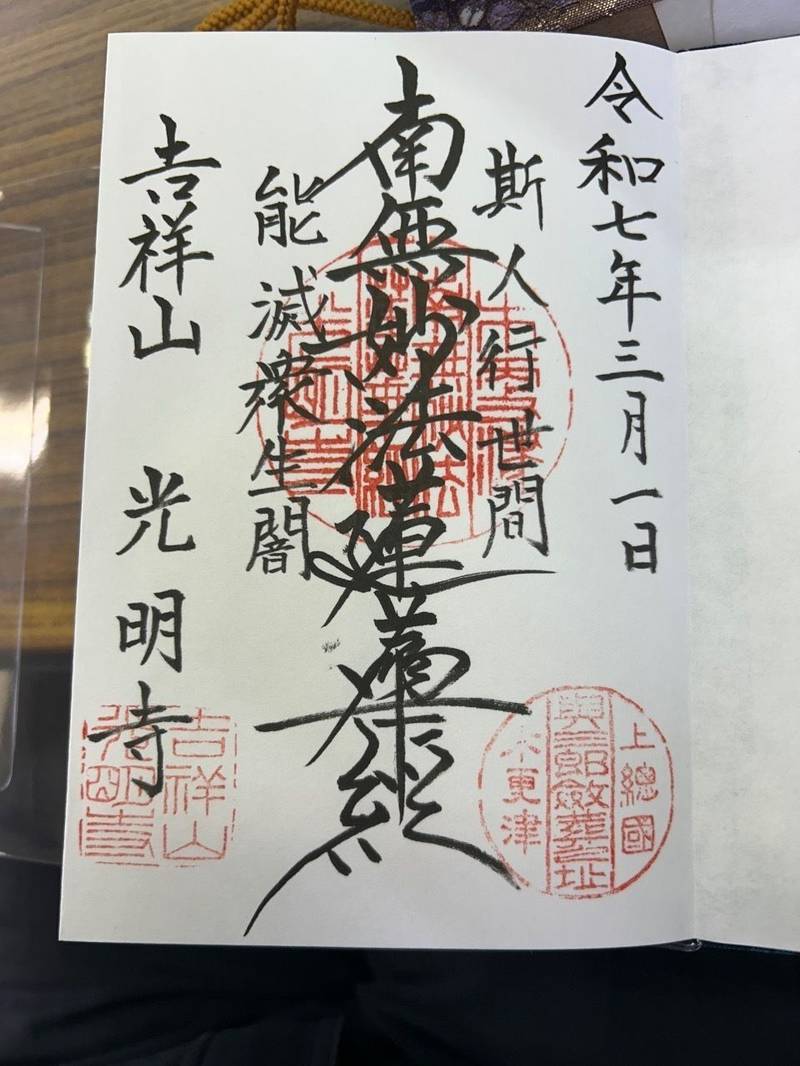 令和七年三月一日
斯人行世間
南無妙法蓮華経
能滅衆生闇
吉祥山 光明寺
上總國
與三郎斂葬之址
木更津
吉祥山
光明寺